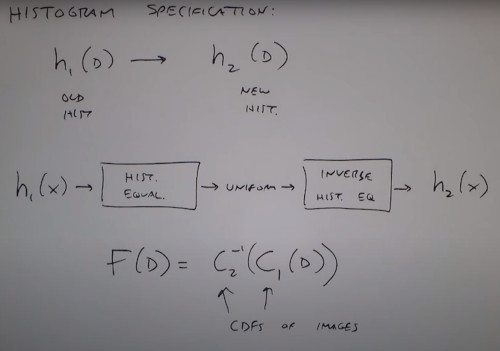 HISTOGRAM SPECIFICATION:
h₁(D) → h₂(D)
OLD HIST NEW HIST.
h₁(x) → HIST. EQUAL. → UNIFORM → INVERSE HIST. EQ → h₂(x)
F(D) = C₂⁻¹(C₁(D))
↑ ↑
CDFS OF IMAGES